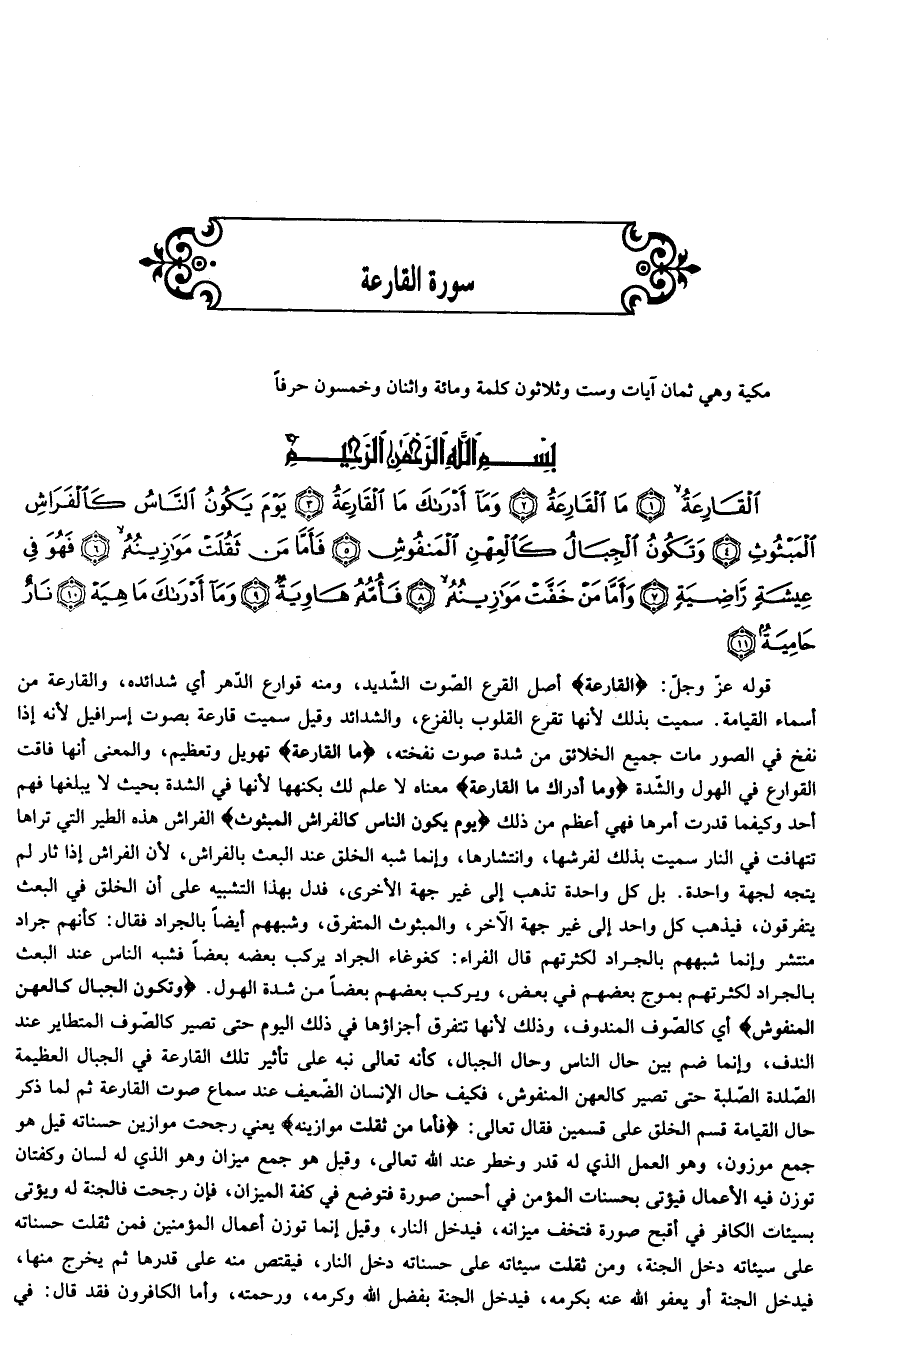 سورة القارعة
مكية وهي ثمان آيات وست وثلاثون كلمة ومائة واثنان وخمسون حرفاً
بِسْمِ ٱللَّهِ ٱلرَّحْمَٰنِ ٱلرَّحِيمِ
ٱلْقَارِعَةُ ۙ ﴿١﴾ مَا ٱلْقَارِعَةُ ﴿٢﴾ وَمَآ أَدْرَىٰكَ مَا ٱلْقَارِعَةُ ﴿٣﴾ يَوْمَ يَكُونُ ٱلنَّاسُ كَٱلْفَرَاشِ
ٱلْمَبْثُوثِ ﴿٤﴾ وَتَكُونُ ٱلْجِبَالُ كَٱلْعِهْنِ ٱلْمَنفُوشِ ﴿٥﴾ فَأَمَّا مَن ثَقُلَتْ مَوَٰزِينُهُۥ ۙ ﴿٦﴾ فَهُوَ فِى
عِيشَةٍ رَّاضِيَةٍ ﴿٧﴾ وَأَمَّا مَنْ خَفَّتْ مَوَٰزِينُهُۥ ۙ ﴿٨﴾ فَأُمُّهُۥ هَاوِيَةٌ ﴿٩﴾ وَمَآ أَدْرَىٰكَ مَا هِيَهْ ﴿١٠﴾ نَارٌ
حَامِيَةٌۢ ﴿١١﴾
قوله عزّ وجلّ: ﴿القارعة﴾ أصل القرع الصّوت الشّديد، ومنه قوارع الدّهر أي شدائده، والقارعة من
أسماء القيامة. سميت بذلك لأنها تقرع القلوب بالفزع، والشدائد وقيل سميت قارعة بصوت إسرافيل لأنه إذا
نفخ في الصور مات جميع الخلائق من شدة صوت نفخته، ﴿ما القارعة﴾ تهويل وتعظيم، والمعنى أنها فاقت
القوارع في الهول والشّدة ﴿وما أدراك ما القارعة﴾ معناه لا علم لك بكنهها لأنها في الشدة بحيث لا يبلغها فهم
أحد وكيفما قدرت أمرها فهي أعظم من ذلك ﴿يوم يكون الناس كالفراش المبثوث﴾ الفراش هذه الطير التي تراها
تتهافت في النار سميت بذلك لفرشها، وانتشارها، وإنما شبه الخلق عند البعث بالفراش، لأن الفراش إذا ثار لم
يتجه لجهة واحدة. بل كل واحدة تذهب إلى غير جهة الأخرى، فدل بهذا التشبيه على أن الخلق في البعث
يتفرقون، فيذهب كل واحد إلى غير جهة الآخر، والمبثوث المتفرق، وشبههم أيضاً بالجراد فقال: كأنهم جراد
منتشر وإنما شبههم بالجراد لكثرتهم قال الفراء: كغوغاء الجراد يركب بعضه بعضاً فشبه الناس عند البعث
بالجراد لكثرتهم بموج بعضهم في بعض، ويركب بعضهم بعضاً من شدة الهول. ﴿وتكون الجبال كالعهن
المنفوش﴾ أي كالصّوف المندوف، وذلك لأنها تتفرق أجزاؤها في ذلك اليوم حتى تصير كالصّوف المتطاير عند
الندف، وإنما ضم بين حال الناس وحال الجبال، كأنه تعالى نبه على تأثير تلك القارعة في الجبال العظيمة
الصّلدة الصّلبة حتى تصير كالعهن المنفوش، فكيف حال الإنسان الضّعيف عند سماع صوت القارعة ثم لما ذكر
حال القيامة قسم الخلق على قسمين فقال تعالى: ﴿فأما من ثقلت موازينه﴾ يعني رجحت موازين حسناته قيل هو
جمع موزون، وهو العمل الذي له قدر وخطر عند الله تعالى، وقيل هو جمع ميزان وهو الذي له لسان وكفتان
توزن فيه الأعمال فيؤتى بحسنات المؤمن في أحسن صورة فتوضع في كفة الميزان، فإن رجحت فالجنة له ويؤتى
بسيئات الكافر في أقبح صورة فتخف ميزانه، فيدخل النار، وقيل إنما توزن أعمال المؤمنين فمن ثقلت حسناته
على سيئاته دخل الجنة، ومن ثقلت سيئاته على حسناته دخل النار، فيقتص منه على قدرها ثم يخرج منها،
فيدخل الجنة أو يعفو الله عنه بكرمه، فيدخل الجنة بفضل الله وكرمه، ورحمته، وأما الكافرون فقد قال: في